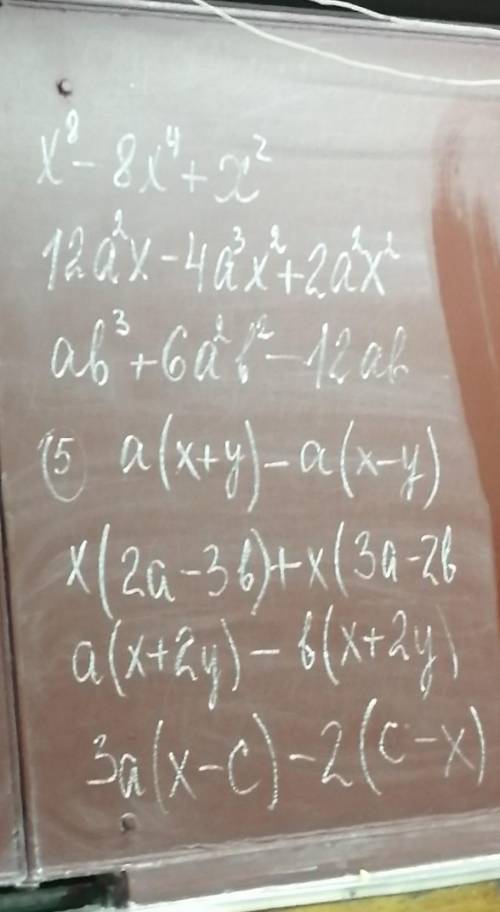 x⁸ - 8x⁴ + x²
12a²x - 4a³x² + 2a²x²
ab³ + 6a²b² - 12ab
15 a(x+y) - a(x-y)
x(2a - 3b) + x(3a - 2b
a(x+2y) - b(x+2y)
3a(x-c) - 2(c-x)